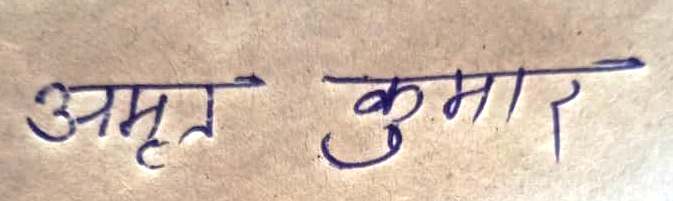 अमृत कुमार